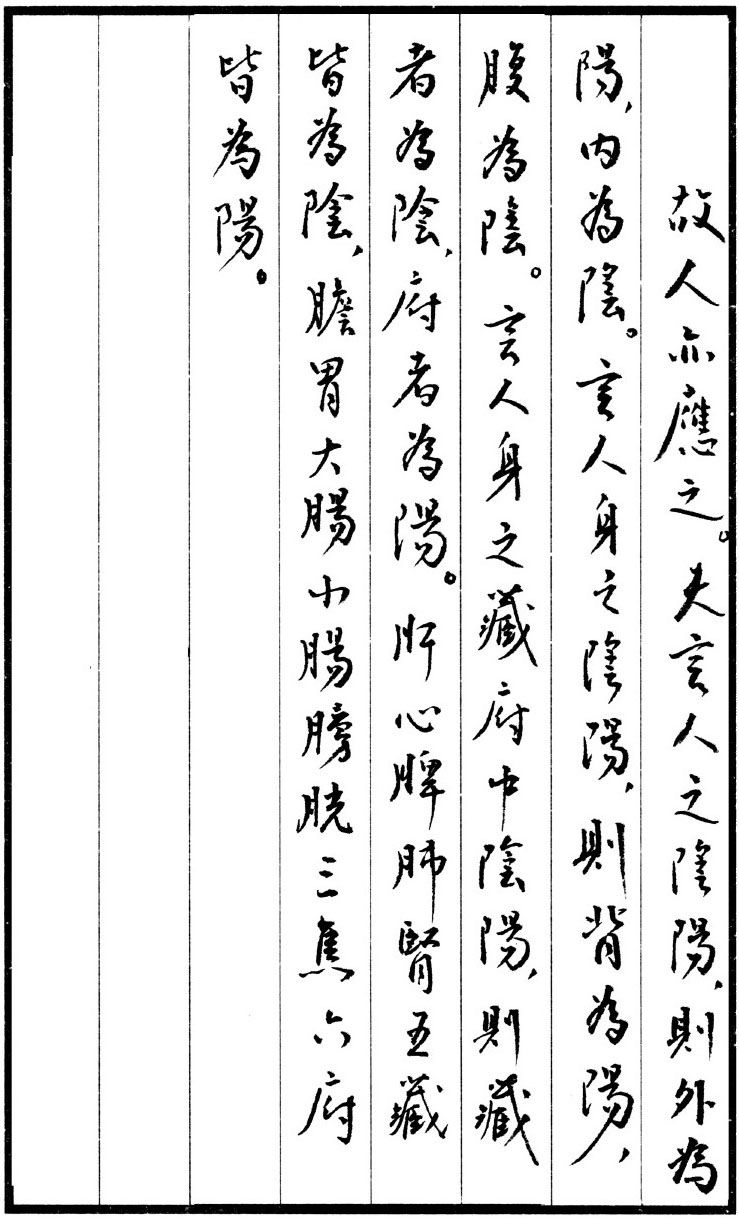 故人亦應之。夫言人之陰陽,則外為
陽,內為陰。言人身之陰陽,則背為陽,
腹為陰。言人身之藏府中陰陽,則藏
者為陰,府者為陽。肝心脾肺腎五藏
皆為陰,膽胃大腸小腸膀胱三焦六府
皆為陽。